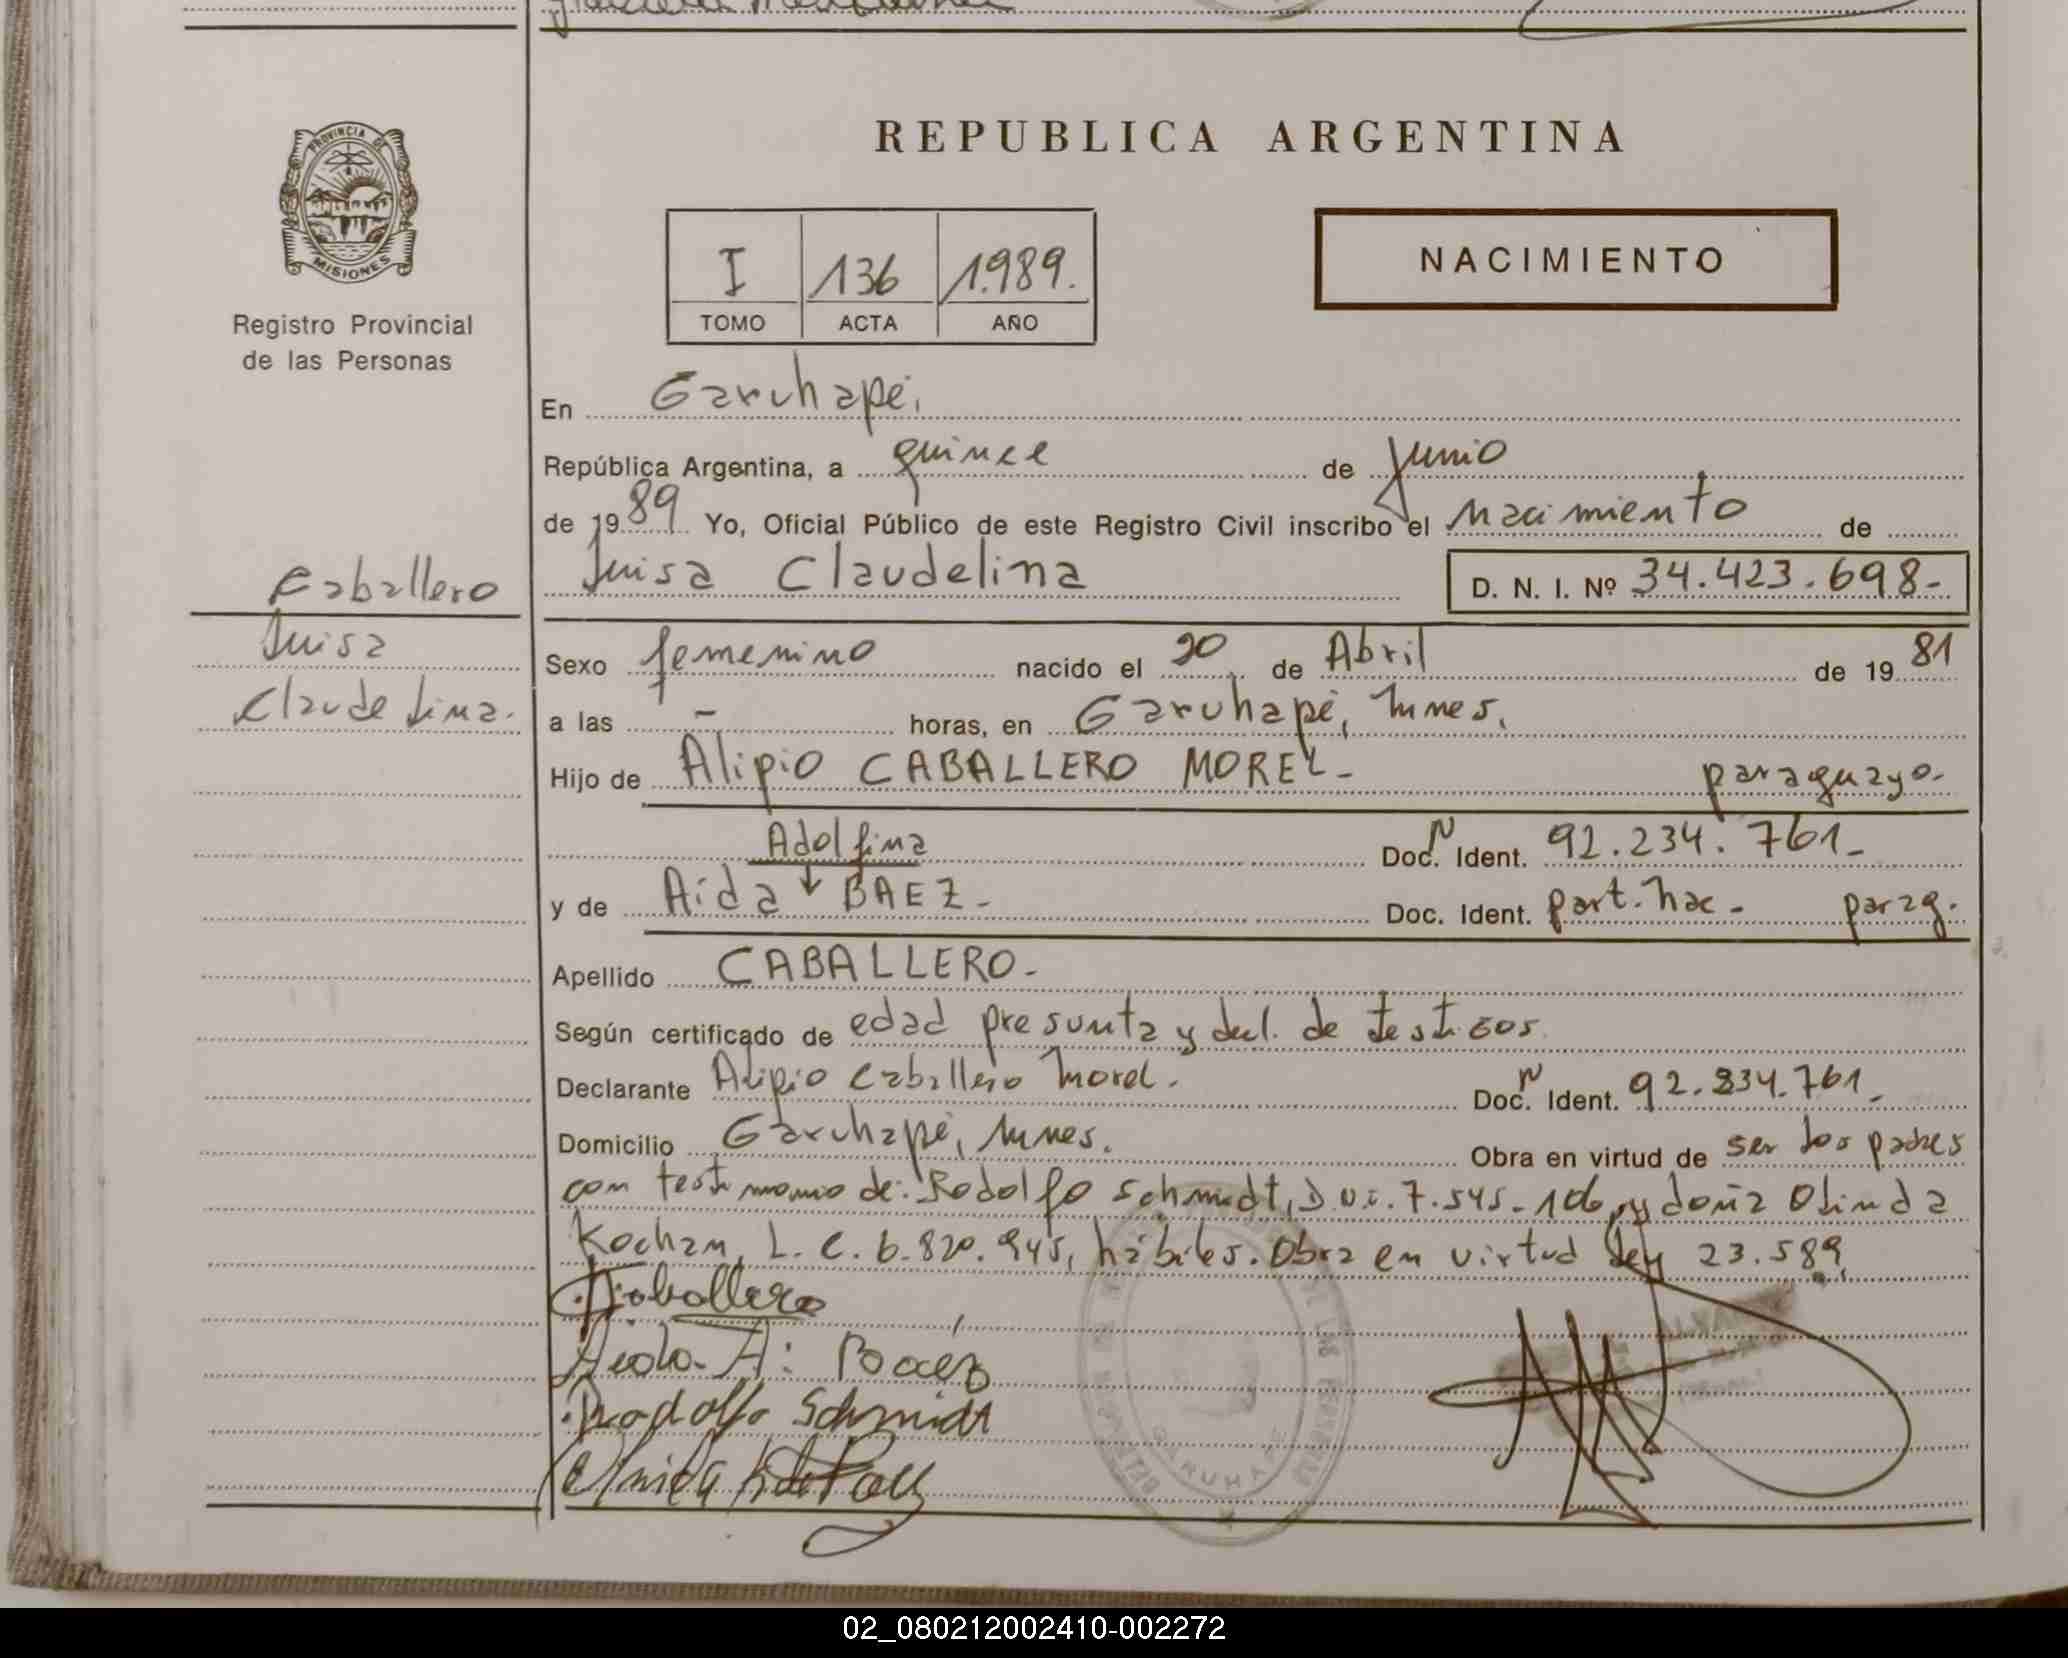 PROVINCIA DE
MISIONES
Registro Provincial
de las Personas
Caballero
Luisa
Claudelina.
REPUBLICA ARGENTINA
I 136 1.989.
TOMO ACTA AÑO
NACIMIENTO
En Garuhapé,
República Argentina, a quince de junio
de 1989 Yo, Oficial Público de este Registro Civil inscribo el nacimiento de
Luisa Claudelina D. N. I. Nº 34.423.698-
Sexo femenino nacido el 20 de Abril de 1981
a las - horas, en Garuhapé, Mnes.
Hijo de Alipio CABALLERO MOREL- paraguayo.
Adolfina Doc. N Ident. 92.234.761-
y de Aida ↓ BAEZ- Doc. Ident. part. nac- parag.
Apellido CABALLERO-
Según certificado de edad presunta y decl. de testigos
Declarante Alipio Caballero Morel. Doc. N Ident. 92.234.761-
Domicilio Garuhapé, Mnes. Obra en virtud de ser los padres
con testimonio de: Rodolfo Schmidt, D.N.I. 7.545.106, y doña Olinda
Kochan, L.C. 6.820.945, hábiles. Obra en virtud ley 23.589,
Caballero
Aida A. Baez
Rodolfo Schmidt
GARUHAPE
02_080212002410-002272